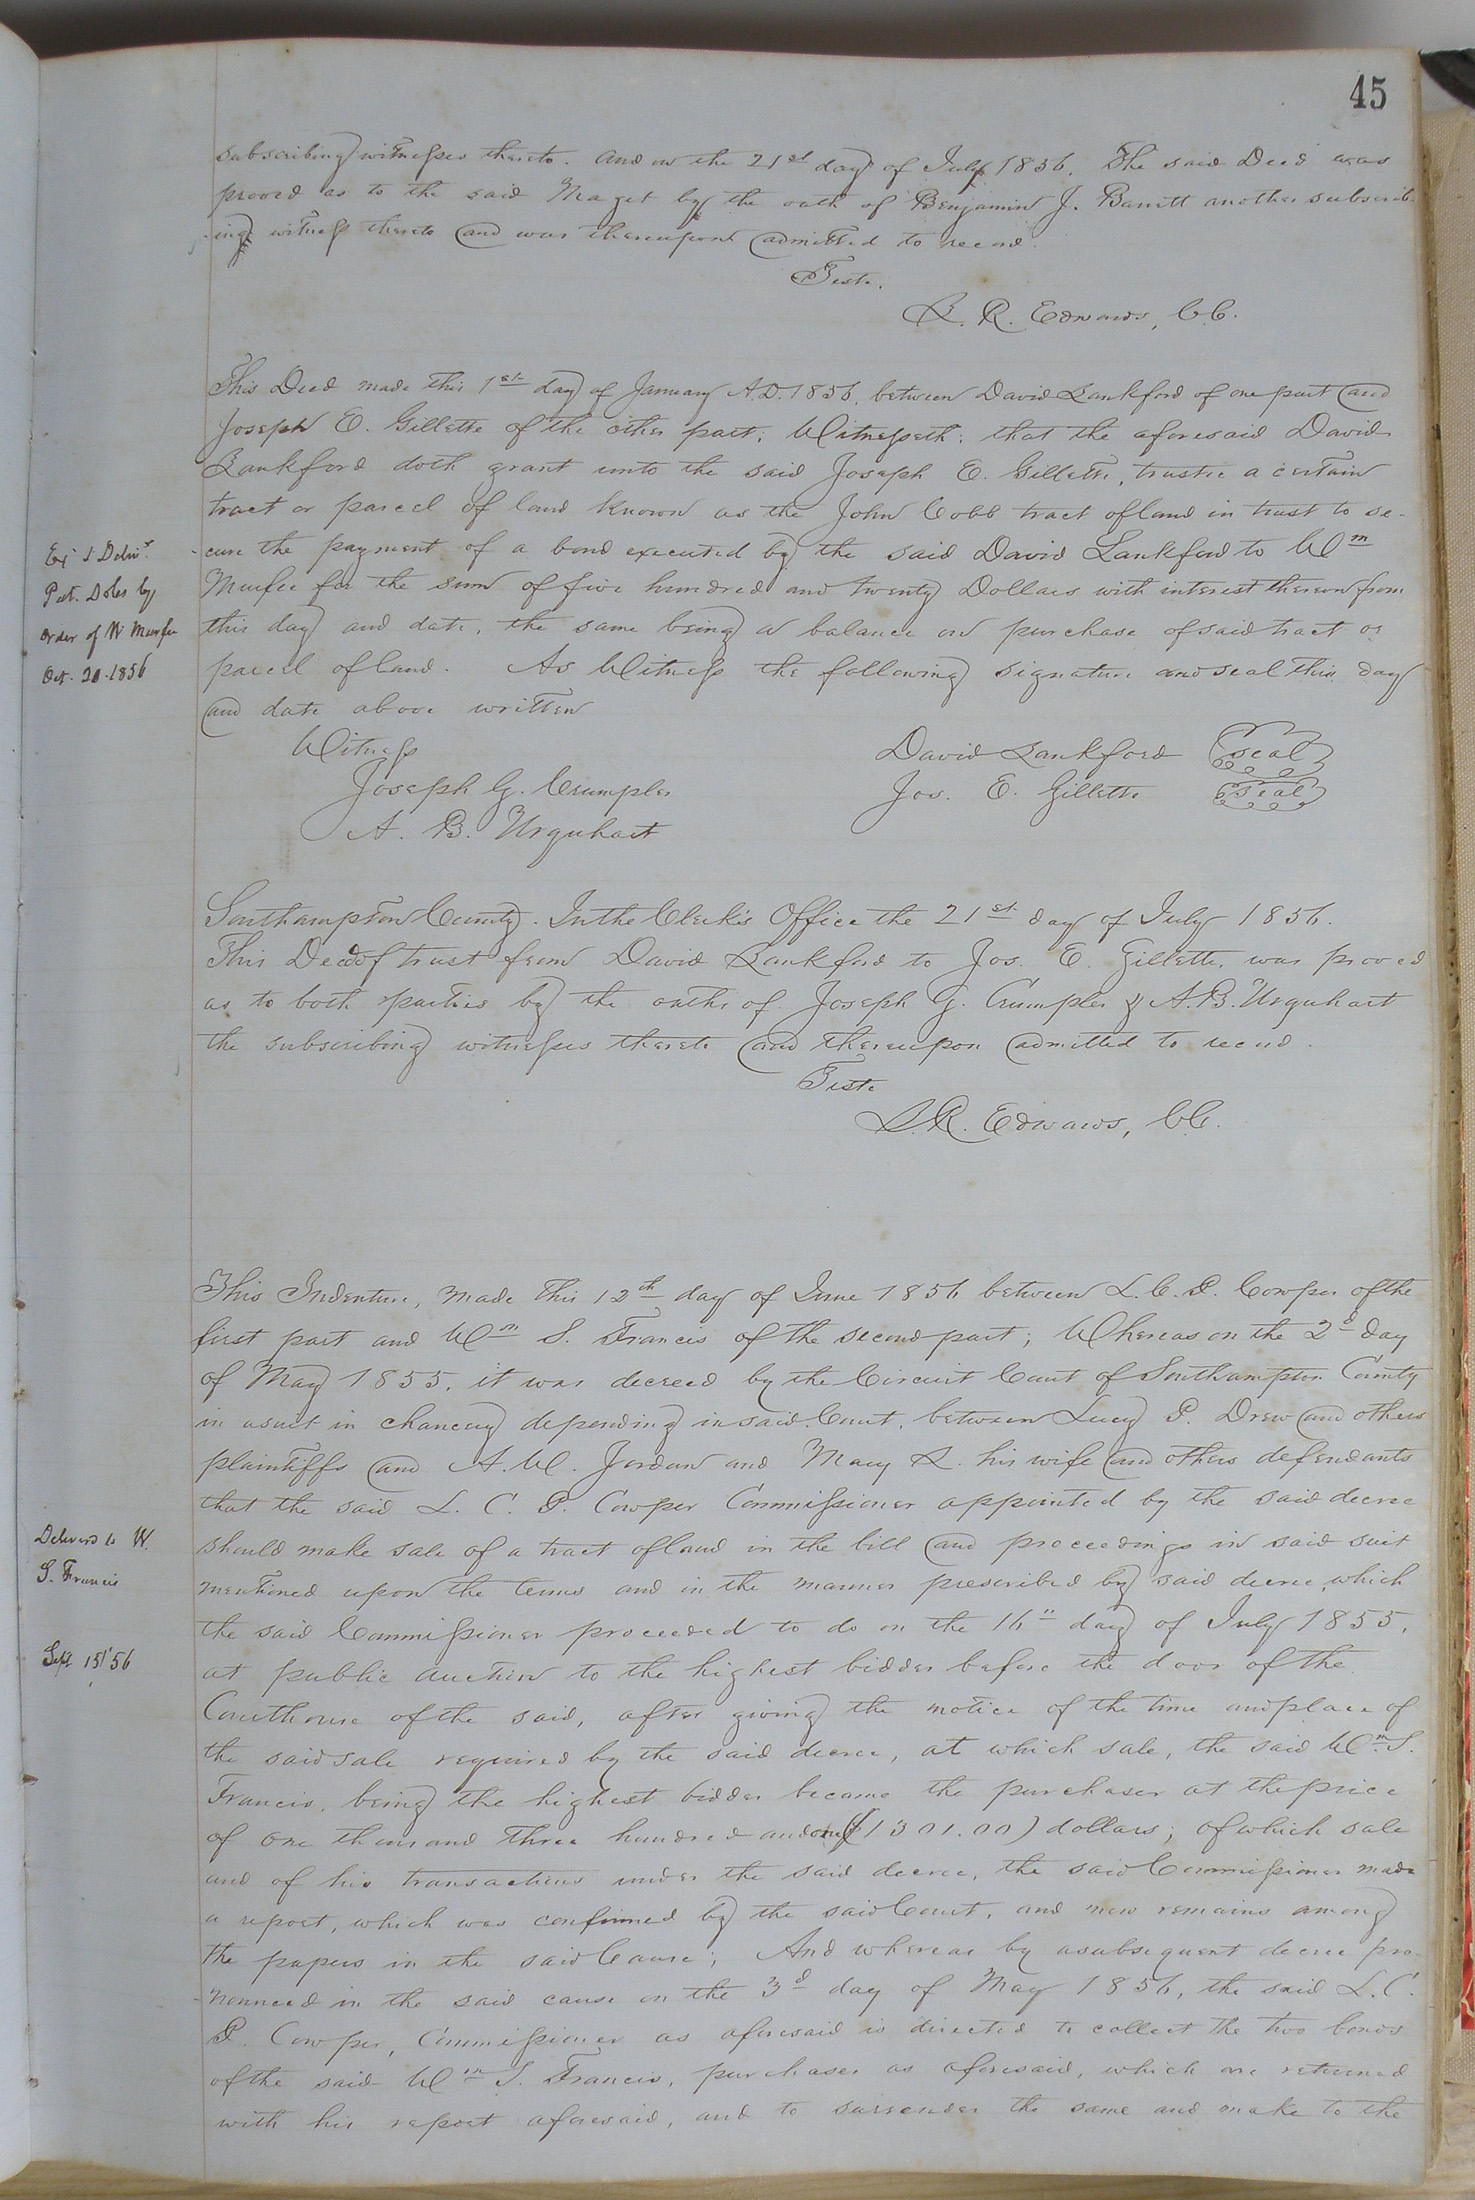 45
subscribing witnesses thereto. And on the 21st day of July 1856. The said Deed was
proved as to the said Maget by the oath of Benjamin J. Barrett another subscrib-
ing witness thereto and was thereupon admitted to record.
Teste.
L. R. Edwards, C.C.
This Deed made this 1st day of January A.D. 1856, between David Lankford of one part and
Joseph E. Gillette of the other part; Witnesseth: that the aforesaid David
Lankford doth grant unto the said Joseph E. Gillette, trustee a certain
tract or parcel of land known as the John Cobb tract of land in trust to se-
cure the payment of a bond executed by the said David Lankford to Wm
Murfee for the sum of five hundred and twenty Dollars with interest thereon from
this day and date, the same being a balance on purchase of said tract or
parcel of land. As Witness the following signature and seal this day
and date above written
Ex'd & Delivd.
Pat. Doles by
order of W Murfee
Oct. 20. 1856
Witness
Joseph G. Crumpler
A. B. Urquhart
David Lankford seal
Jos. E. Gillette seal
Southampton County. In the Clerk's Office the 21st day of July 1856.
This Deed of trust from David Lankford to Jos. E. Gillette, was proved
as to both parties by the oaths of Joseph G. Crumpler & A. B. Urquhart
the subscribing witnesses thereto and thereupon admitted to record.
Teste
L. R. Edwards, C.C.
This Indenture, made this 12th day of June 1856 between L. C. P. Cowper of the
first part and Wm S. Francis of the second part; Whereas on the 2d day
of May 1855, it was decreed by the Circuit Court of Southampton County
in a suit in chancery depending in said Court, between Lucy P. Drew and others
plaintiffs and A. W. Jordan and Mary L. his wife and others defendants
that the said L. C. P. Cowper Commissioner appointed by the said decree
should make sale of a tract of land in the bill and proceedings in said suit
mentioned upon the terms and in the manner prescribed by said decree, which
the said Commissioner proceeded to do on the 16" day of July 1855,
at public auction to the highest bidder before the door of the
Courthouse of the said, after giving the notice of the time and place of
the said sale required by the said decree, at which sale, the said Wm S.
Francis, being the highest bidder became the purchaser at the price
of one thousand three hundred and one ($1301.00) dollars; of which sale
and of his transactions under the said decree, the said Commissioner made
a report, which was confirmed by the said Court, and now remains among
the papers in the said Cause; And whereas by a subsequent decree pro-
nounced in the said cause on the 3d day of May 1856, the said L. C.
P. Cowper, Commissioner as aforesaid is directed to collect the two bonds
of the said Wm S. Francis, purchaser as aforesaid, which are returned
with his report aforesaid, and to surrender the same and make to the
Deliverd to W.
S. Francis
Sept 15 '56